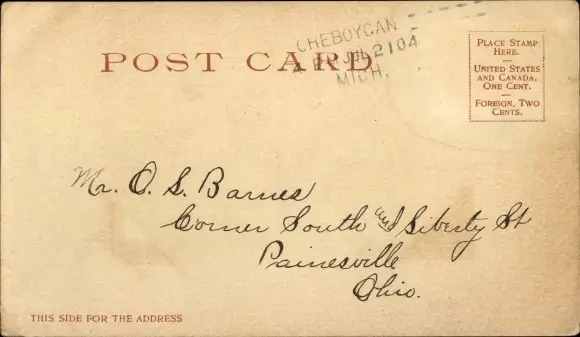 POST CARD
CHEBOYGAN
JUL 2 104
MICH.
PLACE STAMP
HERE.
UNITED STATES
AND CANADA,
ONE CENT.
FOREIGN, TWO
CENTS.
Mr. O. S. Barnes
Corner South and Liberty St
Painesville
Ohio.
THIS SIDE FOR THE ADDRESS